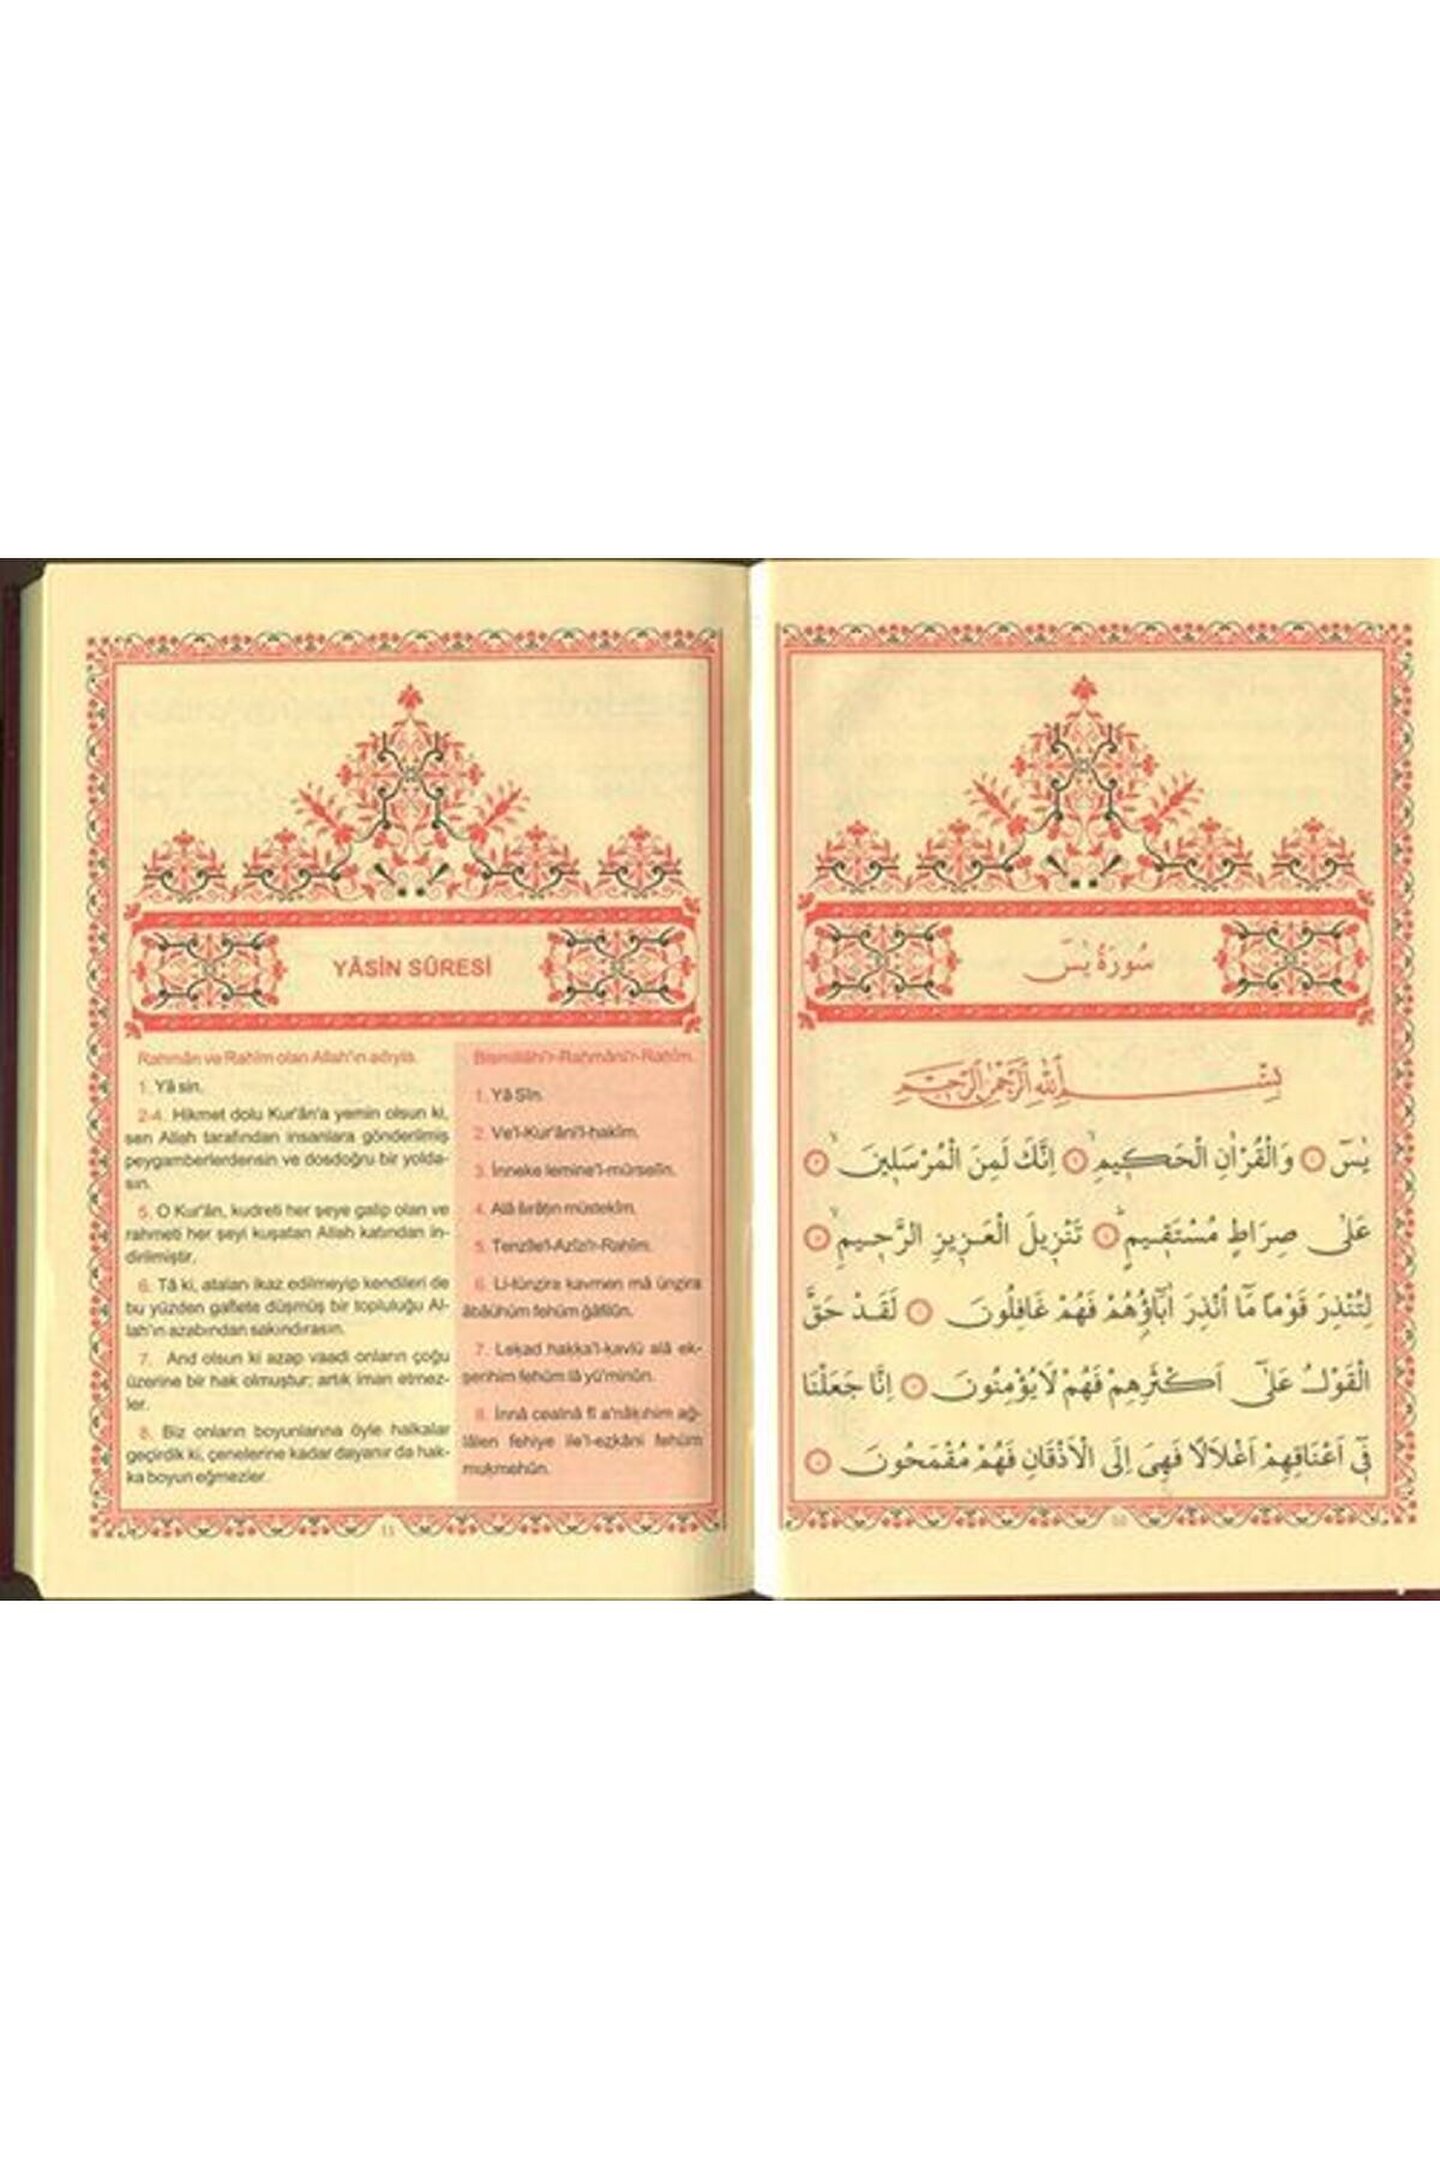 YÂSİN SÛRESİ
Rahmân ve Rahîm olan Allah'ın adıyla.
1. Yâ sin.
2-4. Hikmet dolu Kur'ân'a yemin olsun ki,
sen Allah tarafından insanlara gönderilmiş
peygamberlerdensin ve dosdoğru bir yolda-
sın.
5. O Kur'ân, kudreti her şeye galip olan ve
rahmeti her şeyi kuşatan Allah katından in-
dirilmiştir.
6. Tâ ki, ataları ikaz edilmeyip kendileri de
bu yüzden gaflete düşmüş bir topluluğu Al-
lah'ın azabından sakındırasın.
7. And olsun ki azap vaadi onların çoğu
üzerine bir hak olmuştur; artık iman etmez-
ler.
8. Biz onların boyunlarına öyle halkalar
geçirdik ki, çenelerine kadar dayanır da hak-
ka boyun eğmezler.
Bismillâhi'r-Rahmâni'r-Rahîm.
1. Yâ Sîn.
2. Ve'l-Kur'âni'l-hakîm.
3. İnneke lemine'l-mürselîn.
4. Alâ ṣırâṭın müstekîm.
5. Tenzîle'l-Azîzi'r-Rahîm.
6. Li-tünẕira kavmen mâ ünẕira
âbâühüm fehüm ğâfilûn.
7. Leḳad haḳḳa'l-ḳavlü alâ ek-
ŝerihim fehüm lâ yü'minûn.
8. İnnâ cealnâ fî a'nâḳıhim ağ-
lâlen fehiye ile'l-eẕḳâni fehüm
muḳmehûn.
11
سُورَةُ يٰسٓ
بِسْمِ اللّٰهِ الرَّحْمٰنِ الرَّحِيمِ
يٰسٓ ۝ وَالْقُرْاٰنِ الْحَك۪يمِۙ ۝ اِنَّكَ لَمِنَ الْمُرْسَل۪ينَۙ ۝
عَلٰى صِرَاطٍ مُسْتَق۪يمٍۜ ۝ تَنْز۪يلَ الْعَز۪يزِ الرَّح۪يمِۙ ۝
لِتُنْذِرَ قَوْمًا مَٓا اُنْذِرَ اٰبَٓاؤُ۬هُمْ فَهُمْ غَافِلُونَ ۝ لَقَدْ حَقَّ
الْقَوْلُ عَلٰٓى اَكْثَرِهِمْ فَهُمْ لَا يُؤْمِنُونَ ۝ اِنَّا جَعَلْنَا
ف۪ٓي اَعْنَاقِهِمْ اَغْلَالًا فَهِيَ اِلَى الْاَذْقَانِ فَهُمْ مُقْمَحُونَ ۝